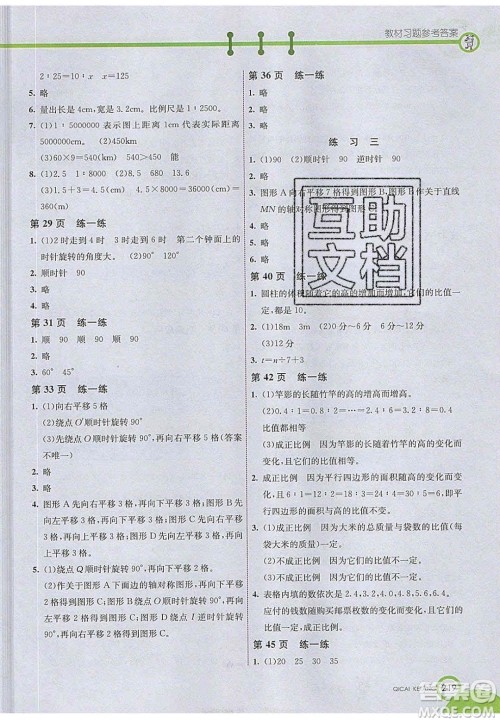 教材习题参考答案
2∶25=10∶x　x=125
5. 略
6. 量出长是4cm,宽是2cm　略
7. (1)1∶5000000表示图上距离1cm代表实际距离
5000000cm。(2)450km
(3)60×9=540(km)　5×90=450(km)
8. (1)1.5　3　4.5　6　7.5　9
(3)1.5+3=4.5(元)　7.5÷1.5=5(m)
第29页　练一练
1. (1)2时走到4时　3时走到6时　第二个钟面上的
时针旋转的角度大。(2)90°
2. 顺时针　90
3. 略
4. 略
第31页　练一练
1. 顺　90　顺　90　顺　90
2. 略
3. 60°　45°
第33页　练一练
1. (1)向右平移5格
(2)绕点O′顺时针旋转90°
(3)先绕点B顺时针旋转90°,再向右平移5格(答案
不唯一)
2. 略
3. 略
4. 图形A先向右平移3格,再向下平移3格,图形B先
向左平移3格,再向下平移3格,图形C先向右平移
3格,再向上平移3格,图形D先向左平移3格,再向
上平移3格。
5. (1)绕点Q顺时针旋转90°
(2)作关于图形A下面边的轴对称图形,再向右平
移2格得到图形B。图形B绕点I逆时针旋转90°,
再向上平移2格得到图形C。
第36页　练一练
1. 略
2. 略
练习三
1. (1)90　(2)顺时针　90　逆时针　90
2. 略
3. 图形A向右平移7格得到图形B,作关于直线
MN的轴对称图形得到
4. 略
5. 略
第40页　练一练
1. 圆柱的体积随着它的高的增加而增加,它们的比值一
定。
2. (1)18m　3m　(2)0分~6分　6分~12分
(3)12分
3. t=n÷7+3
第42页　练一练
1. (1)竿影的长随竹竿的高的增高而增高。
(2)0.4　0.4　0.4　0.4　0.4　0.4
比值都相等。
(3)成正比例　因为竿影的长随着竹竿的高的变化而
变化,且它们的比值一定。
2. (2)成正比例　因为平行四边形的面积随高的变化而
变化,且6∶1=12∶2=18∶3=24∶4=…=6,即
平行四边形的面积与高的比值一定。
3. (1)成正比例　因为大米的总质量与袋数的比值一
定。
(2)不成正比例　因为它们的比值不一定。
(3)不成正比例　因为它们的比值不一定。
4. 表格内填的依次为2.4　3.6　4.8　6.0　7.2
应付的钱数随购买邮票枚数的变化而变化,且它们
的比值一定,所以它们成正比例。
第45页　练一练
1. (1)20　25　30　35
互助
文档
QICAI
219
答案圈
MXQE.COM